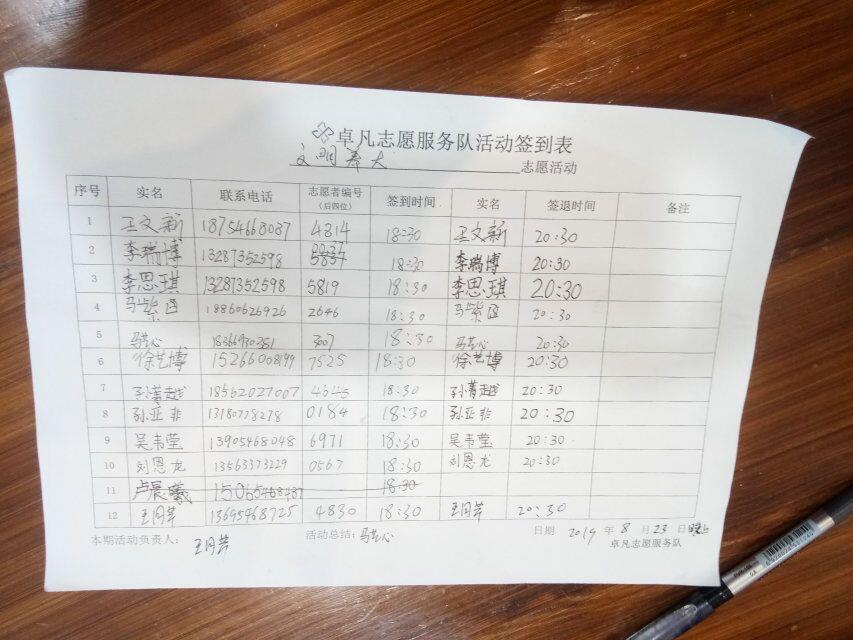 卓凡志愿服务队活动签到表
文明养犬 志愿活动
序号 实名 联系电话 志愿者编号（后四位） 签到时间 实名 签退时间 备注
1 王文新 18754668087 4314 18:30 王文新 20:30
2 李瑞博 13287352598 0037 18:30 李瑞博 20:30
3 李思琪 13287352598 5819 18:30 李思琪 20:30
4 18860626926 2646 18:30 20:30
5 18366930381 3007 18:30 20:30
6 徐艺博 15266008199 7525 18:30 徐艺博 20:30
7 孙菁越 18562027007 4645 18:30 孙菁越 20:30
8 孙亚非 13180778278 0184 18:30 孙亚非 20:30
9 吴韦莹 13905468048 6971 18:30 吴韦莹 20:30
10 刘恩龙 13563373229 0567 18:30 刘恩龙 20:30
11 卢晨曦 15065468487 18:30
12 13695468725 4830 18:30 20:30
本期活动负责人： 活动总结： 日期 2019 年 8 月 23 日晚上
卓凡志愿服务队